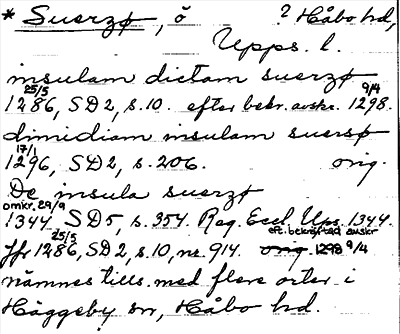 * Suerzø, ö ? Håbo hd,
Upps. l.
insulam dictam suerzø
25/5 9/4
1286, SD 2, s. 10. efter bekr. avskr. 1298.
dimidiam insulam suersø
17/1
1296, SD 2, s. 206. orig.
De insula suerzø
omkr. 29/9
1344 SD 5, s. 354. Reg. Eccl. Ups. 1344.
25/5 eft. bekräftad avskr
Jfr 1286, SD 2, s. 10, nr 914. orig. 1298 9/4
nämnes tills. med flere orter i
Häggeby sn, Håbo hd.